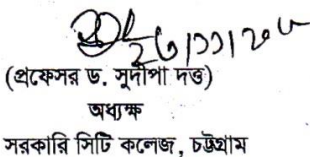 (প্রফেসর ড. সুদীপা দত্ত)
অধ্যক্ষ
সরকারি সিটি কলেজ, চট্টগ্রাম